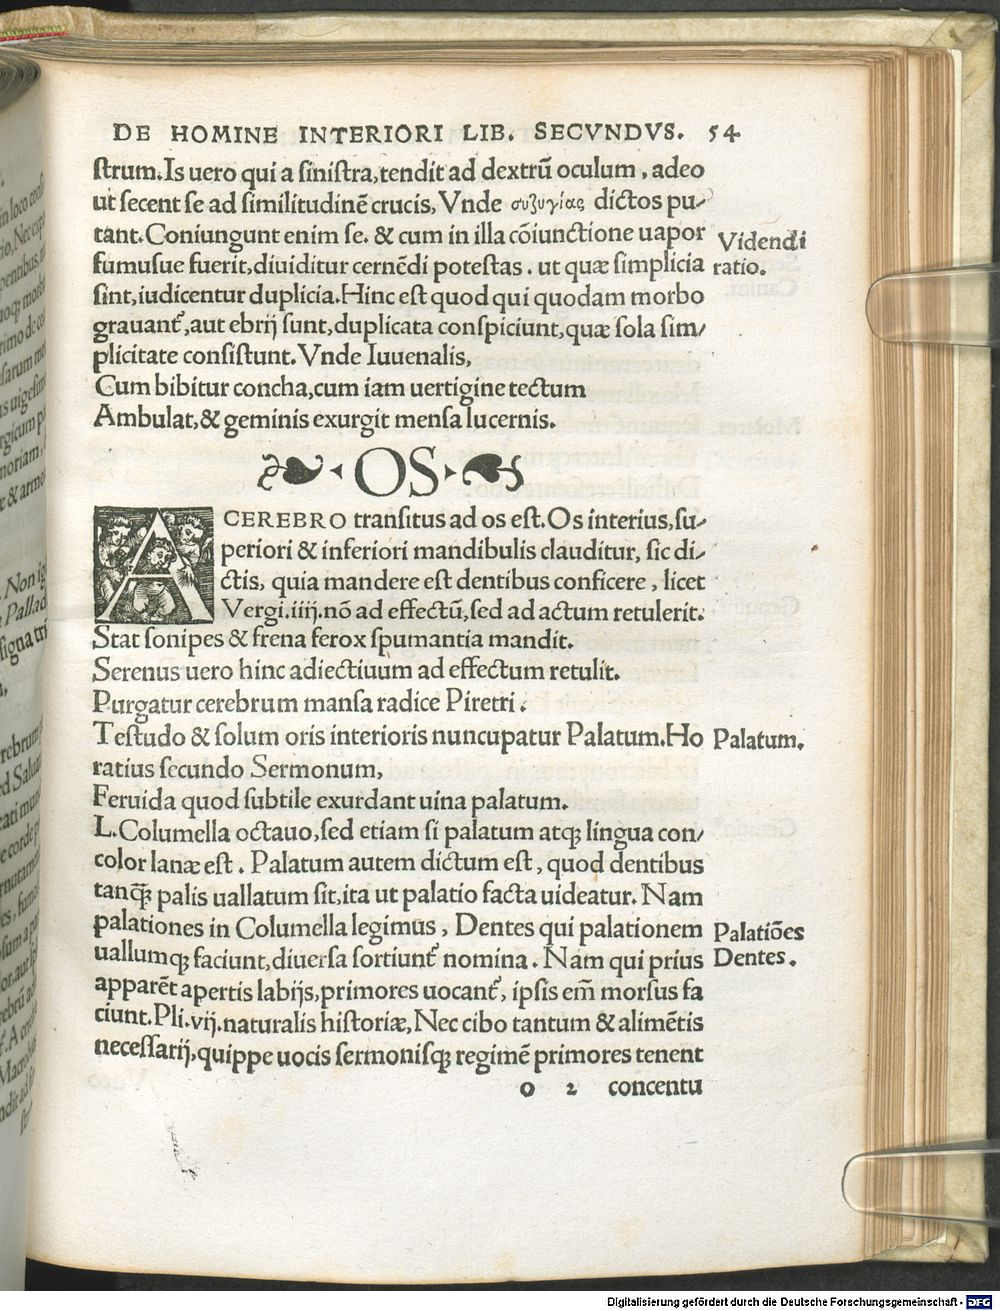 DE HOMINE INTERIORI LIB. SECVNDVS. 54
ſtrum. Is uero qui a ſiniſtra, tendit ad dextrū oculum, adeo
ut ſecent ſe ad ſimilitudinē crucis, Vnde συζυγίας dictos pu-
tant. Coniungunt enim ſe. & cum in illa cōiunctione uapor
Videndi
fumuſue fuerit, diuiditur cernēdi poteſtas. ut quæ ſimplicia
ratio.
ſint, iudicentur duplicia. Hinc eſt quod qui quodam morbo
grauant᷑, aut ebrij ſunt, duplicata conſpiciunt, quæ ſola ſim/
plicitate conſiſtunt. Vnde Iuuenalis,
Cum bibitur concha, cum iam uertigine tectum
Ambulat, & geminis exurgit menſa lucernis.
OS
A CEREBRO tranſitus ad os eſt. Os interius, ſu-
periori & inferiori mandibulis clauditur, ſic di-
ctis, quia mandere eſt dentibus conficere, licet
Vergi. iiij. nō ad effectū, ſed ad actum retulerit.
Stat ſonipes & frena ferox ſpumantia mandit.
Serenus uero hinc adiectiuum ad effectum retulit.
Purgatur cerebrum manſa radice Piretri.
Teſtudo & ſolum oris interioris nuncupatur Palatum. Ho
Palatum.
ratius ſecundo Sermonum,
Feruida quod ſubtile exurdant uina palatum.
L. Columella octauo, ſed etiam ſi palatum atqꝫ lingua con/
color lanæ eſt. Palatum autem dictum eſt, quod dentibus
tanq̄ꝫ palis uallatum ſit, ita ut palatio facta uideatur. Nam
palationes in Columella legimus, Dentes qui palationem
Palatiōes
uallumqꝫ faciunt, diuerſa ſortiunt᷑ nomina. Nam qui prius
Dentes.
apparēt apertis labijs, primores uocant᷑, ipſis em̄ morſus fa
ciunt. Pli. vij. naturalis hiſtoriæ, Nec cibo tantum & alimētis
neceſſarij, quippe uocis ſermoniſqꝫ regimē primores tenent
o 2 concentu
Digitalisierung gefördert durch die Deutsche Forschungsgemeinschaft - DFG